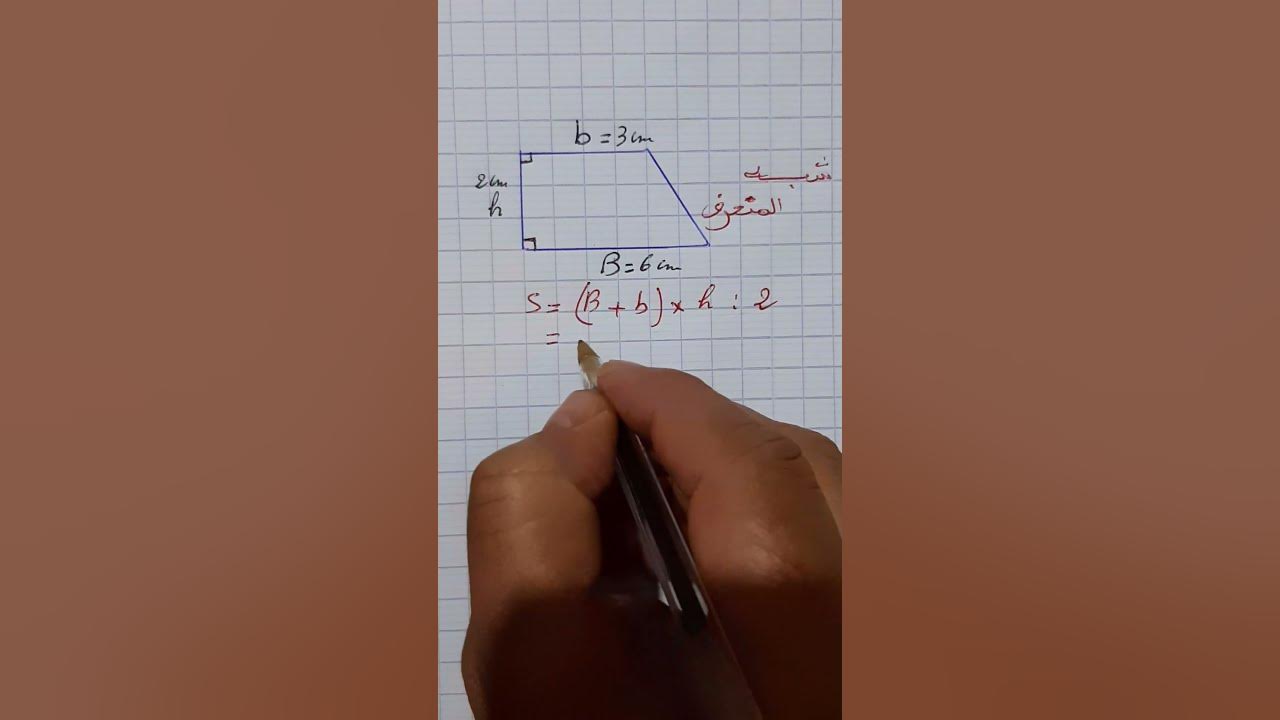 b = 3 cm
2 cm
h
شبه
المنحرف
B = 6 cm
S = (B + b) × h : 2
=